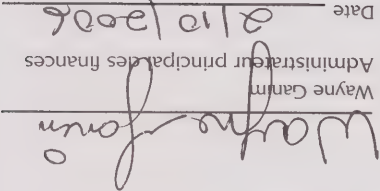 Wayne Ganim
Wayne Ganim
Administrateur principal des finances
2/10/2006
Date